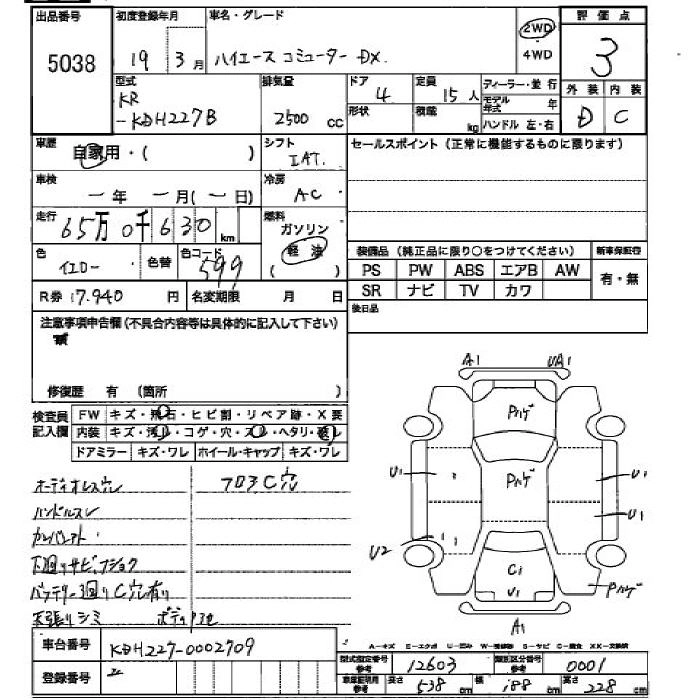 出品番号 初度登録年月 車名・グレード 評価点
5038 19年 3月 ハイエース コミューター DX 2WD 4WD 3
型式 排気量 ドア 定員 ディーラー・並行 外装 内装
KR-KDH227B 2500cc 4 15人 モデル年式 年 D C
形状 積載 kg ハンドル 左・右
車歴 自家用・( ) シフト IAT. セールスポイント(正常に機能するものに限ります)
車検 ー年 ー月(ー日) 冷房 AC
走行 65万0千630km 燃料 ガソリン 軽油
色 イエロー 色替 色コード 599
装備品(純正品に限り○をつけてください) 新車保証書
PS PW ABS エアB AW 有・無
SR ナビ TV カワ
R券 17.940円 名変期限 月 日
後日品
注意事項申告欄(不具合内容等は具体的に記入して下さい)
修復歴 有 (箇所 )
検査員記入欄 FW キズ・飛石・ヒビ割・リペア跡・X要
内装 キズ・汚れ・コゲ・穴・スレ・ヘタリ・破レ
ドアミラー キズ・ワレ ホイール・キャップ キズ・ワレ
オーディオレス穴 フロアC穴
ハンドルスレ
下廻りサビフショク
バッテリー廻りC穴有り
天張りシミ
A1 UA1
Pハゲ
Pハゲ
U1 U1
U1
U2
C1
U1
Pハゲ
A1
A-キズ E-エクボ U-凹み W-補修跡 S-サビ C-腐食 XX-交換済
車台番号 KDH227-0002709
登録番号
型式指定番号参考 12603 類別区分番号参考 0001
車庫証明用参考 長さ 538cm 幅 188cm 高さ 228cm